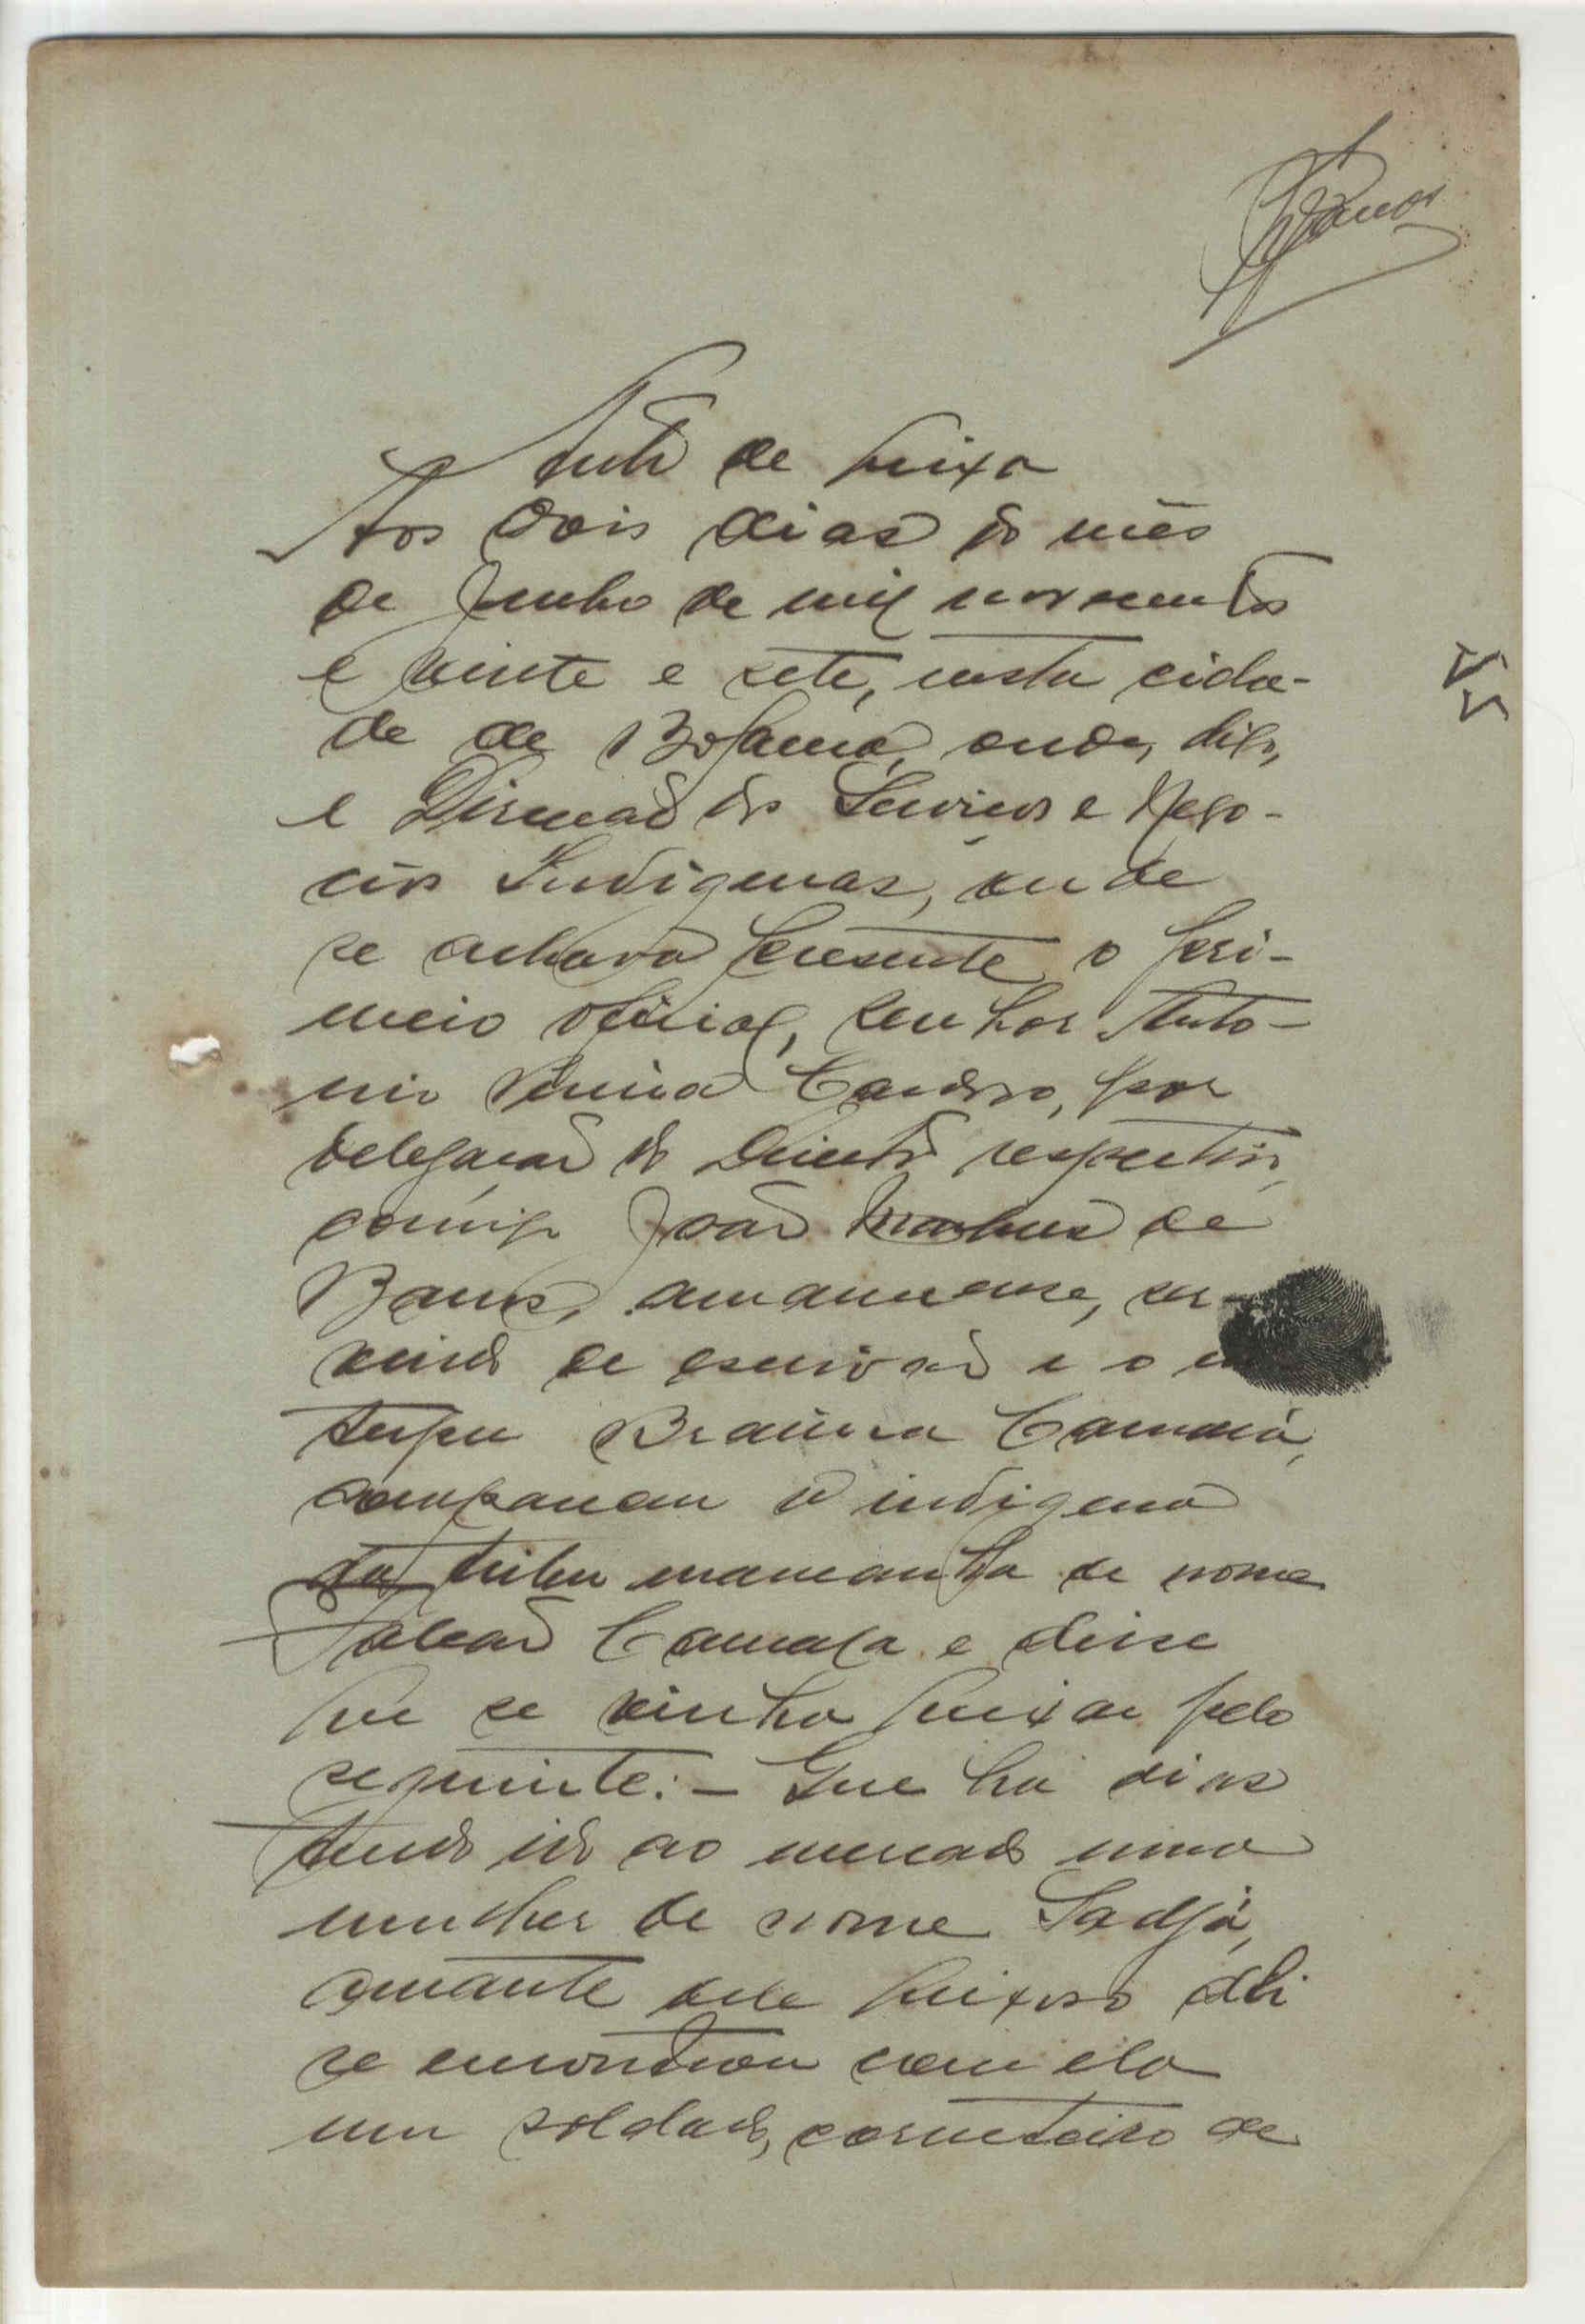 Auto de queixa
Aos dois dias do mês
de Junho de mil novecentos
e vinte e sete, nesta cida-
de de Bolama, onde, digo,
e Direcção dos Serviços e Nego-
cios Indigenas, onde
se achava presente o pri-
meiro oficial, senhor Anto-
nio Pereira Cardoso, por
delegação do Director respectivo,
comigo João de
Barros, amanuense, ser-
vindo de escrivão e o in
terpre Braima Camará,
compareceu o indigena
da tribu mancanha de nome
Camara e disse
que se vinha queixar pelo
seguinte: - Que ha dias
tendo ido ao mercado uma
mulher de nome Sadjá,
amante dele queixoso ali
se encontrou com ela
um soldado, corneteiro de